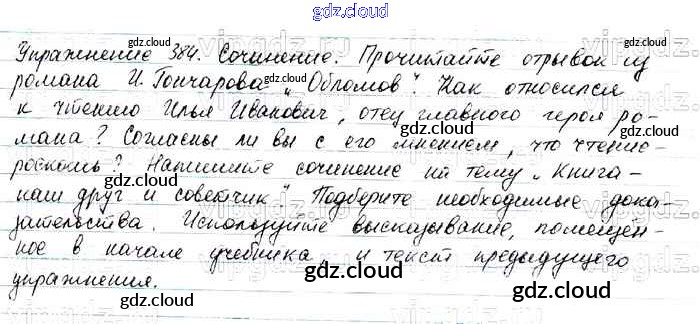 gdz.cloud
Упражнение 384. Сочинение. Прочитайте отрывок из
романа И. Гончарова „Обломов". Как относился
к чтению Илья Иванович, отец главного героя ро-
мана? Согласны ли вы с его мнением, что чтение-
роскошь? Напишите сочинение на тему „Книга-
наш друг и советчик". Подберите необходимые дока-
зательства. Используйте высказывание, помещен-
ное в начале учебника, и текст предыдущего
упражнения.
gdz.cloud